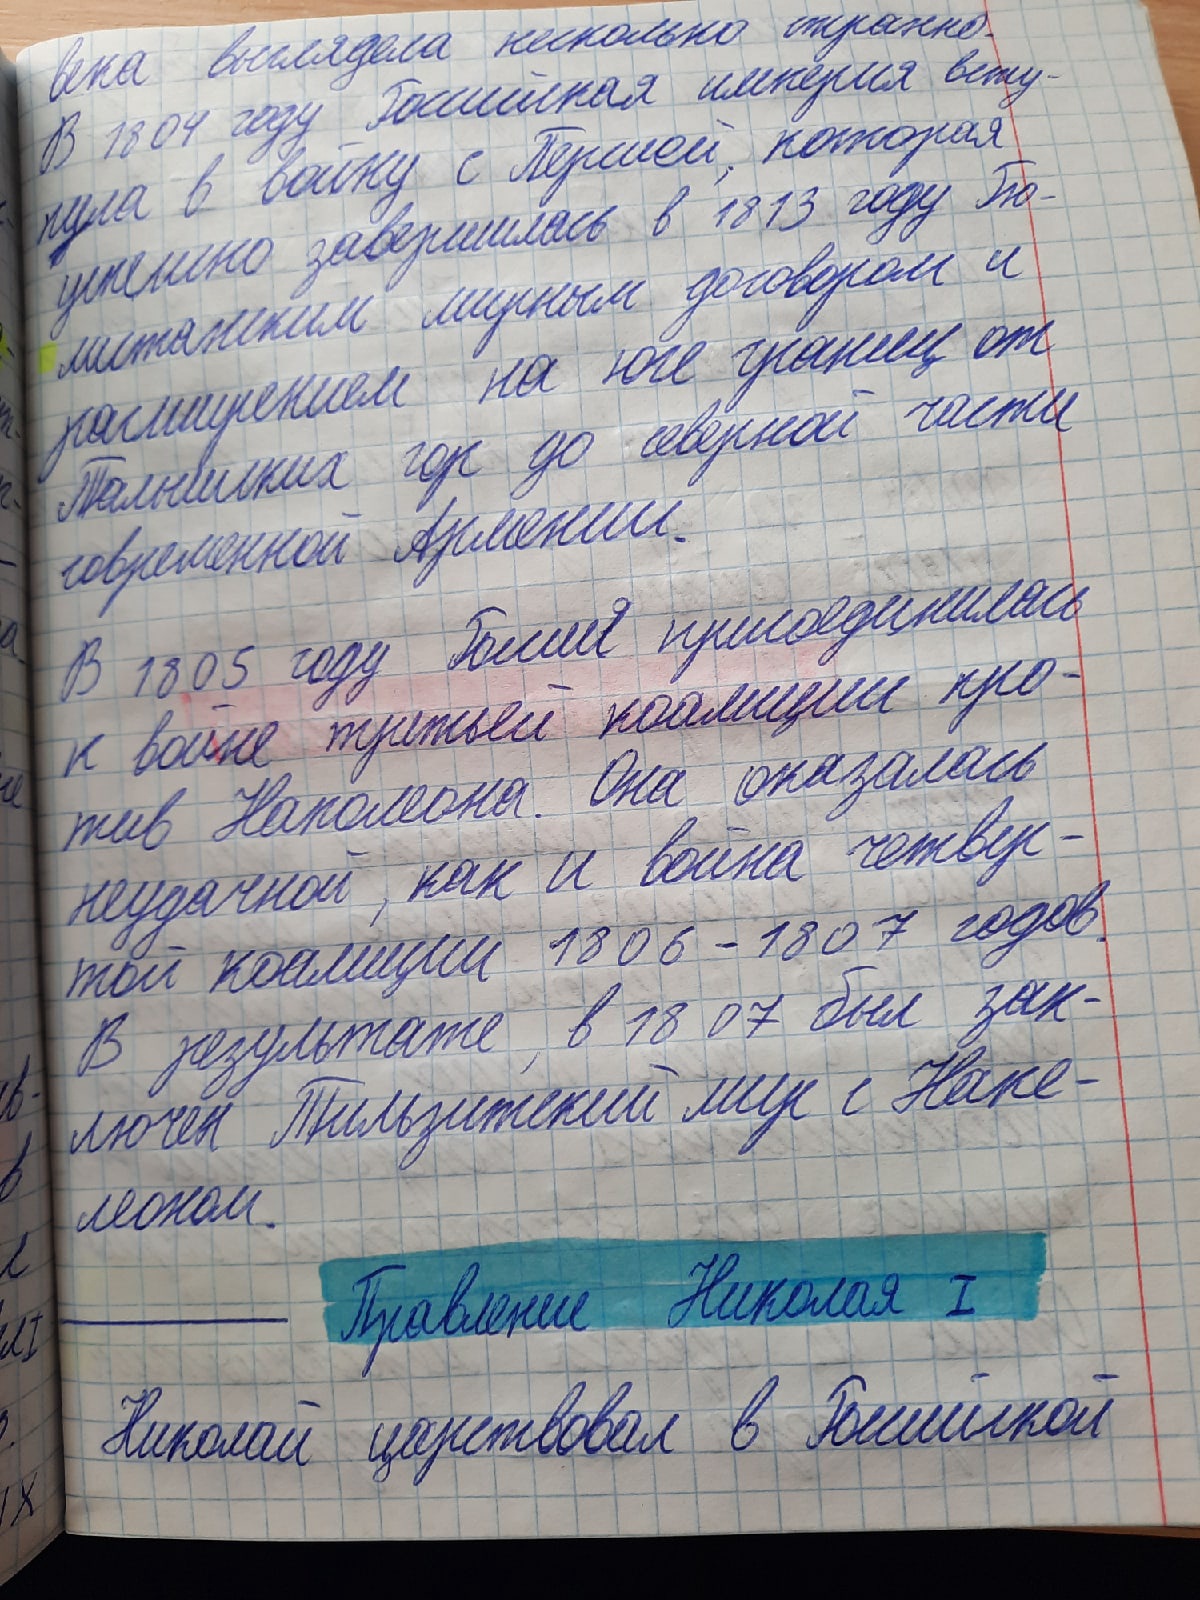 века выглядела несколько странно.
В 1804 году Российская империя всту-
пула в войну с Персией, которая
успешно завершилась в 1813 году Гю-
листанским мирным договором и
расширением на юге границ от
Талышских гор до северной части
современной Армении.
В 1805 году Россия присоединилась
к войне третьей коалиции про-
тив Наполеона. Она оказалась
неудачной, как и война четвер-
той коалиции 1806-1807 годов.
В результате, в 1807 был зак-
лючен Тильзитский мир с Напо-
леоном.
Правление Николая I
Николай царствовал в Российской